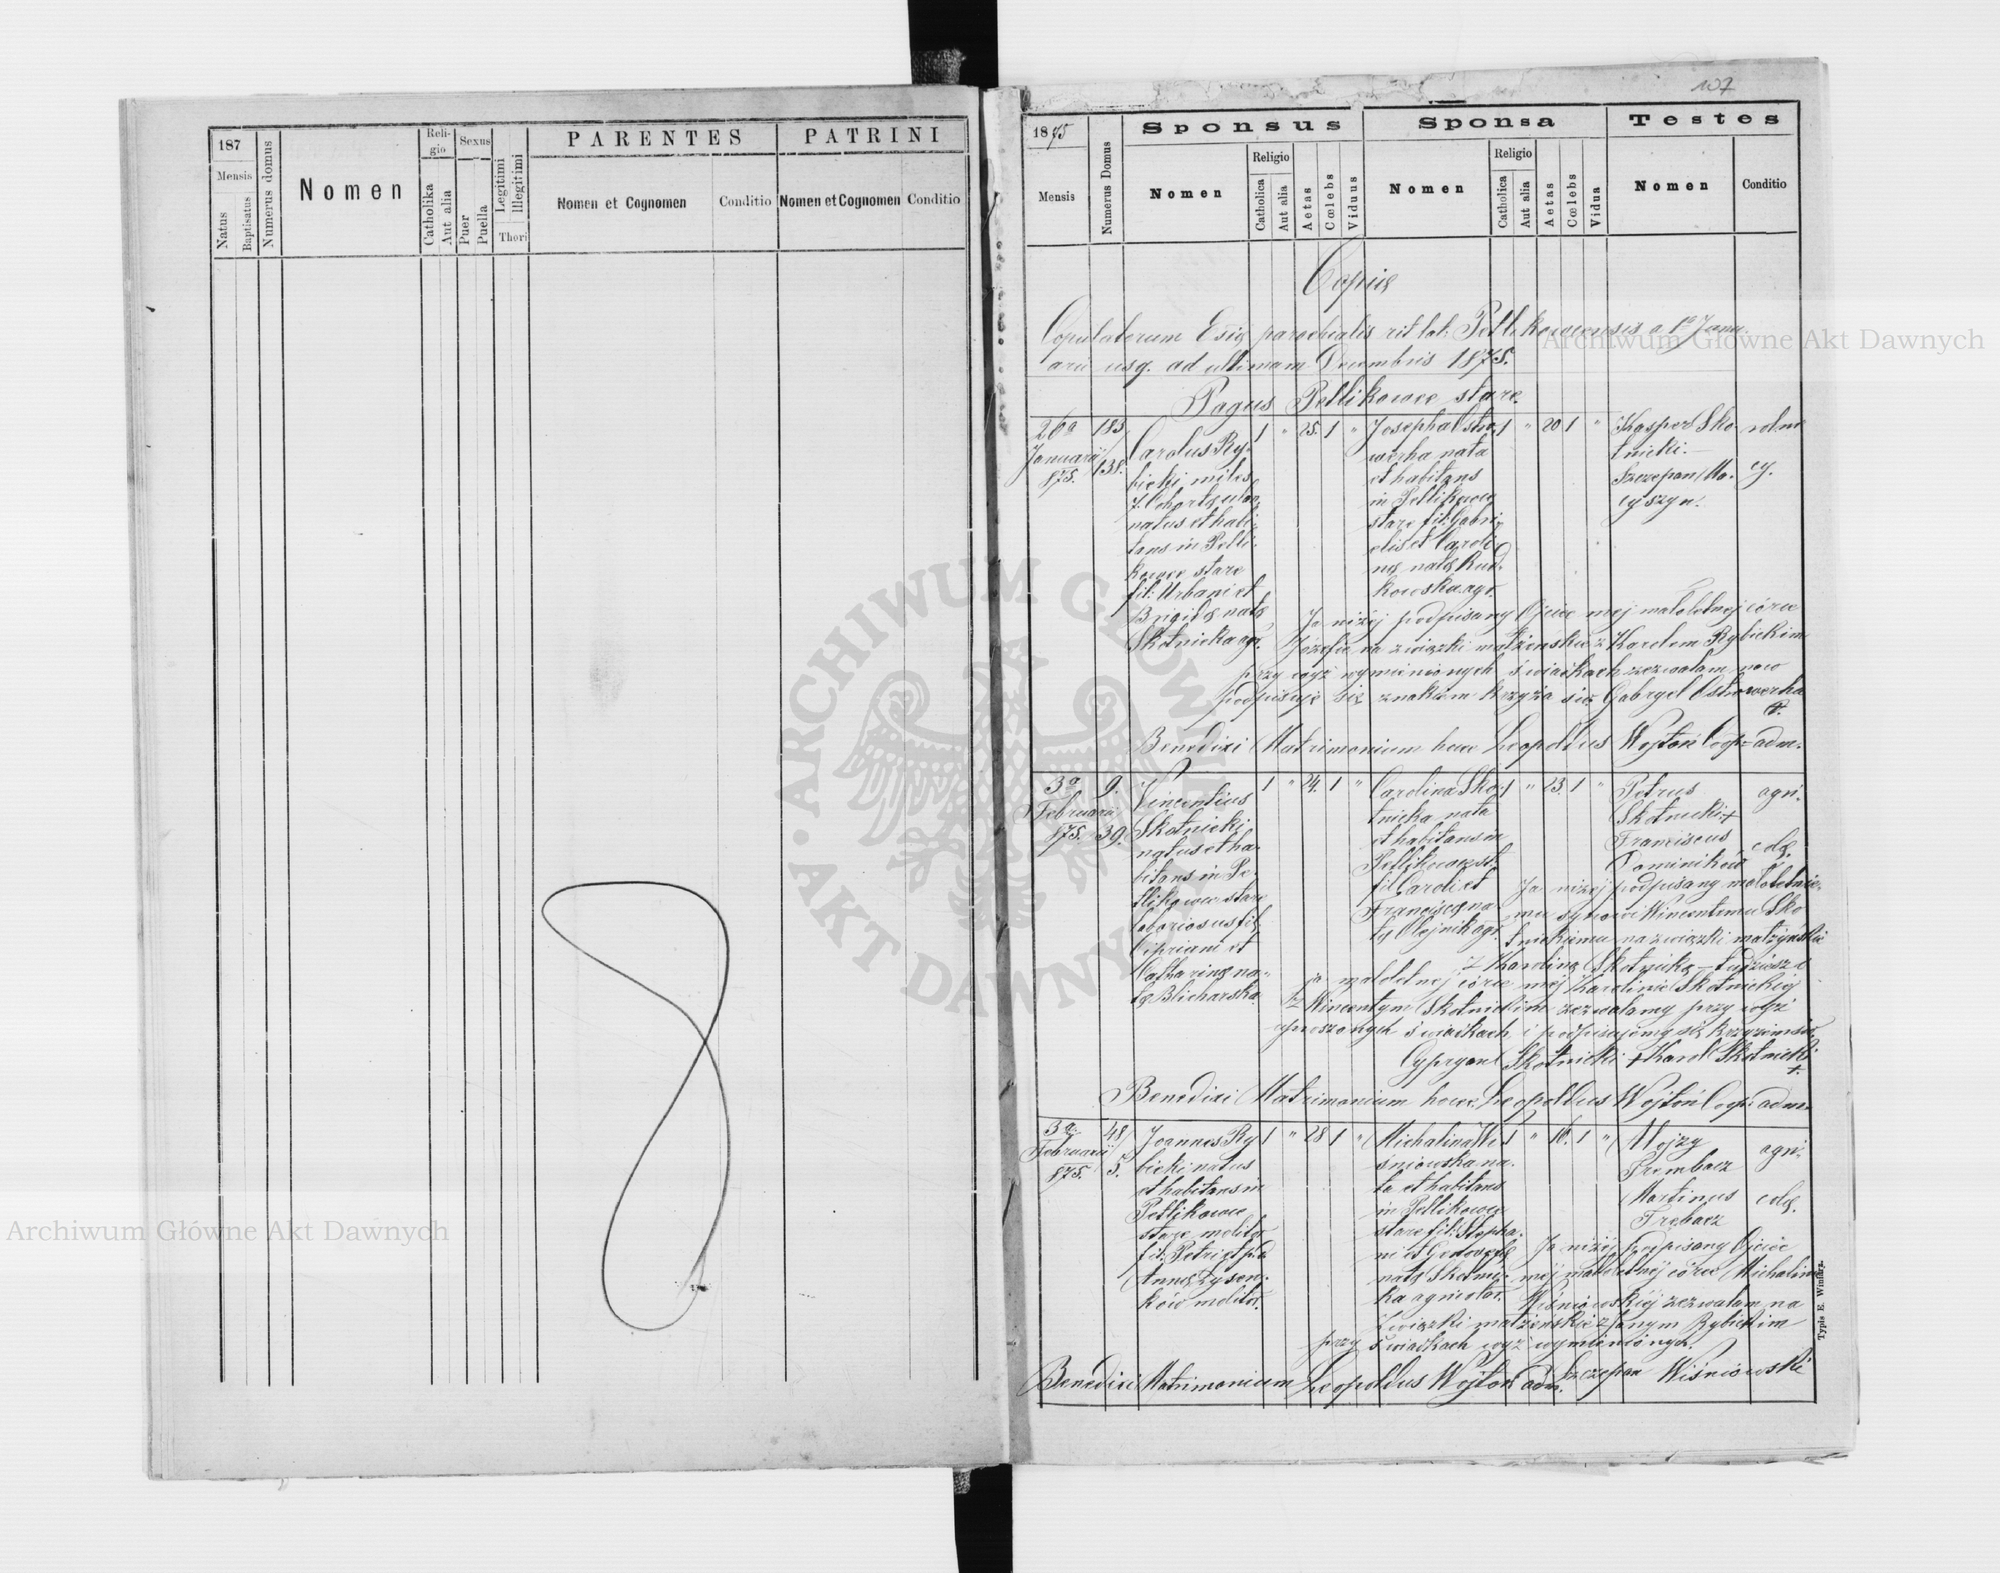 187
Mensis
Natus
Baptisatus
Numerus domus
Nomen
Religio
Catholika
Aut alia
Sexus
Puer
Puella
Legitimi
Illegitimi
Thori
PARENTES
Nomen et Cognomen
Conditio
PATRINI
Nomen et Cognomen
Conditio
107
1875
Mensis
Numerus Domus
Sponsus
Nomen
Religio
Catholica
Aut alia
Aetas
Cœlebs
Viduus
Sponsa
Nomen
Religio
Catholica
Aut alia
Aetas
Cœlebs
Vidua
Testes
Nomen
Conditio
Copia
Copulatorum Ecclae parochialis rit. lat. Petlikowcensis a 1a Janu
arii usq. ad ultimam Decembris 1875.
Pagus Petlikowce stare.
26a
Januarii
875.
183
138.
Carolus Ry-
bicki miles
natus et habi
tans in Petli-
kowce stare
fil: Urbani et
Brigidae natae
Skotnicka agr.
1 " 25. 1 "
Josepha Ostro
werha nata
et habitans
in Petlikowce
stare fil: Gabri
elis et Caroli
nae natae Rud-
kowska agr.
1 " 20 1 "
Kasper Sko
tnicki.
Szczepan Ma-
cyszyn.
Ja niżej podpisany Ojciec mej małoletnej córce
Józefie na związki małżeńskie z Karolem Rybickim
przy wyż wymienionych świadkach zezwalam
podpisuję się znakiem krzyża św. Gabryel Ostrowerha
+
Benedixi Matrimonium hocce Leopoldus Wojtoń Coop. adm.
3a
Februarii
875.
9.
39.
Vincentius
Skotnicki
natus et ha-
bitans in Pe-
tlikowce stare
laboriosus fil:
Cipriani et
Catharinae na-
tae Blicharska
1 " 24. 1 "
Carolina Sko-
tnicka nata
et habitans in
Petlikowce st.
fil Caroli et
Franciscae na-
tae Olejnik agr.
1 " 23. 1 "
Petrus
Skotnicki +
Franciscus
Dominików
agri.
colae.
Ja niżej podpisany małoletnie-
mu synowi Wincentemu Sko
tnickiemu na związki małżeńskie
z Karoliną Skotnicką — tudzież
ja małoletnej córce mej Karolinie Skotnickiej
z Wincentym Skotnickim zezwalamy przy wyż
świadkach i podpisujemy się
Cypryan Skotnicki + Karol Skotnicki
+
Benedixi Matrimonium hocce Leopoldus Wojtoń Coop. adm.
3a
Februarii
875.
48
5.
Joannes Ry
bicki natus
et habitans in
Petlikowce
stare molitor
fil: Petri et p.d.
Annae Łysen-
ków molitor.
1 " 28 1 "
Michalina Wi
śniowska na-
ta et habitans
in Petlikowce
stare fil: Stepha-
ni et Genovefae
natae Skotnic-
ka agricolar.
1 " 16. 1 "
Alojzy
Trembacz
Martinus
Trębacz
agri-
colae.
Ja niżej podpisany Ojciec
mej małoletnej córce Michalinie
Wiśniowskiej zezwalam na
związki małżeńskie z Janym Rybickim
przy świadkach wyż wymienionych.
Szczepan Wiśniowski
Benedixi Matrimonium Leopoldus Wojtoń adm.
Typis E. Winiarz.
Archiwum Główne Akt Dawnych
Archiwum Główne Akt Dawnych
ARCHIWUM GŁÓWNE AKT DAWNYCH